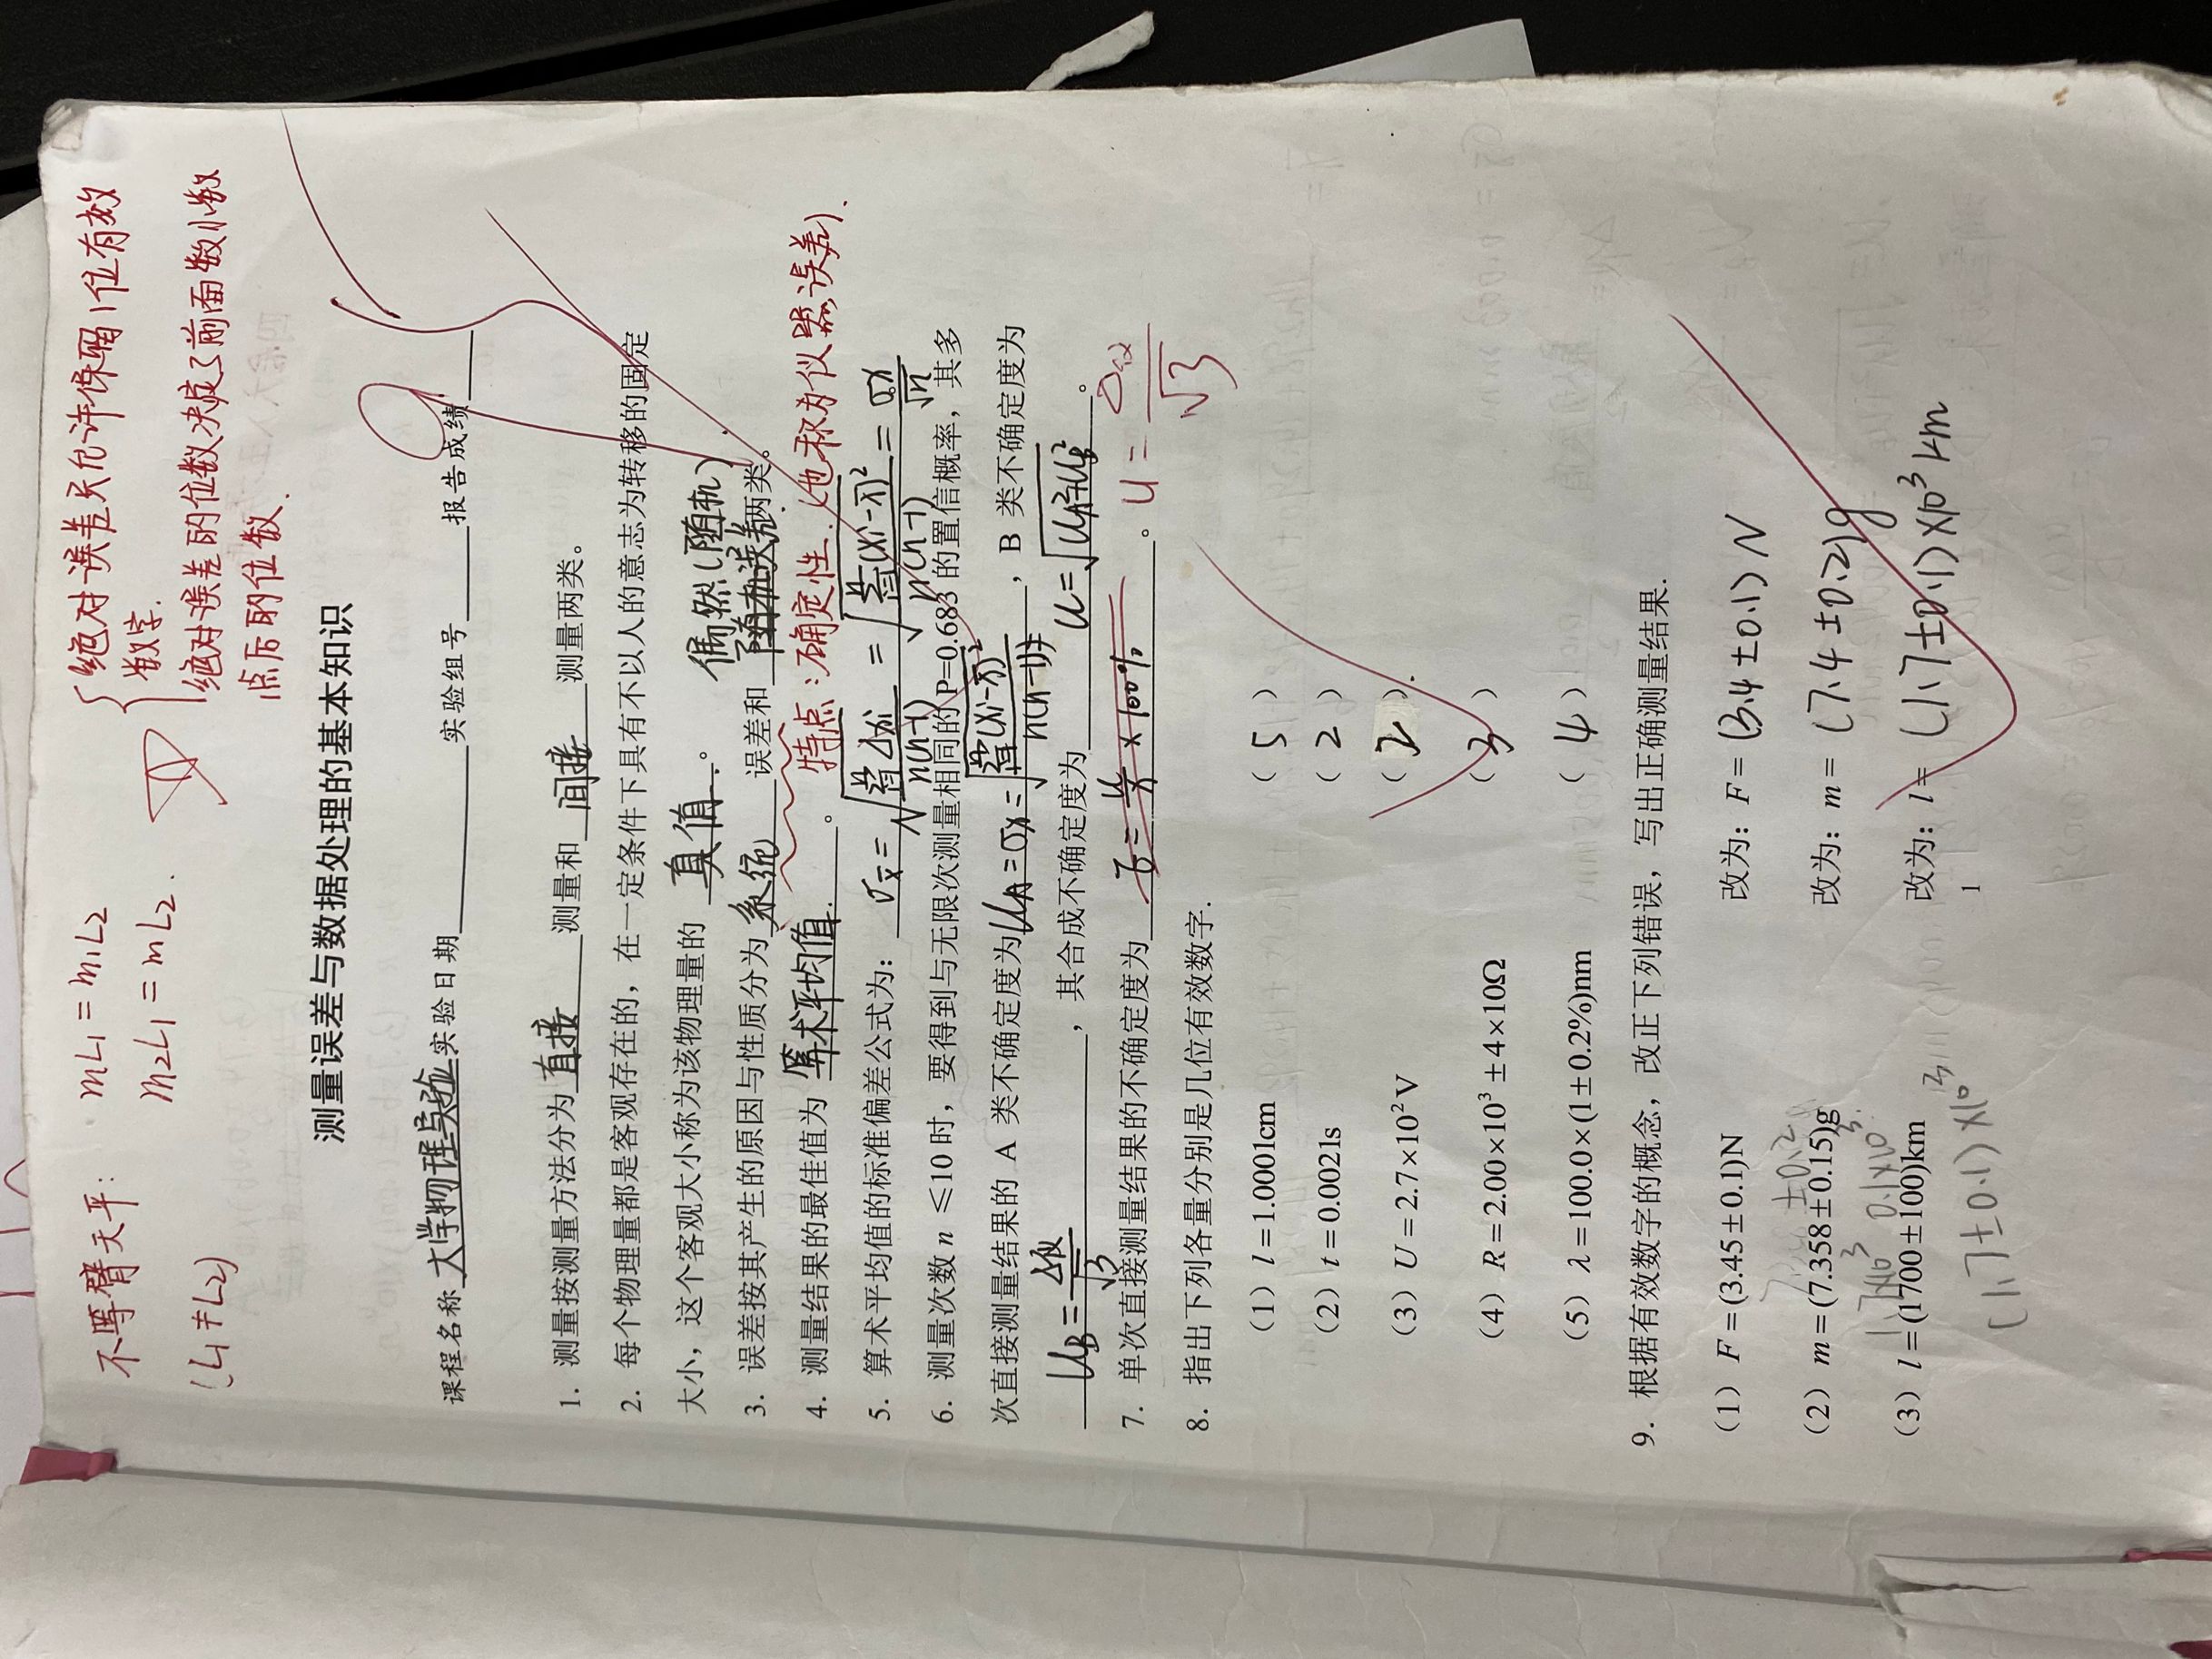 不等臂天平: mL₁ = m₁L₂
m₂L₁ = mL₂.
(L₁≠L₂)
绝对误差只允许保留1位有效
数字.
绝对误差的位数决定了前面数小数
点后的位数.
测量误差与数据处理的基本知识
课程名称 大学物理实验 实验日期 实验组号 报告成绩
1. 测量按测量方法分为 直接 测量和 间接 测量两类。
2. 每个物理量都是客观存在的，在一定条件下具有不以人的意志为转移的固定
大小，这个客观大小称为该物理量的 真值 。
偶然(随机)
3. 误差按其产生的原因与性质分为 系统 误差和 随机误差 两类。
4. 测量结果的最佳值为 算术平均值. 。 特点:确定性.(也称为仪器误差).
5. 算术平均值的标准偏差公式为： σx̄ = √(Σⁿᵢ₌₁Δxi / n(n-1)) = √(Σⁿᵢ₌₁(xi-x̄)² / n(n-1)) = σx/√n
6. 测量次数 n ≤10 时，要得到与无限次测量相同的 P=0.683 的置信概率，其多
次直接测量结果的 A 类不确定度为 UA = σx = √(Σⁿᵢ₌₁(xi-x̄)² / n(n-1)) ，B 类不确定度为
UB = Δ仪/√3 ，其合成不确定度为 U = √(UA²+UB²) 。
7. 单次直接测量结果的不确定度为 E = u/x × 100% 。 U = Δ仪/√3
8. 指出下列各量分别是几位有效数字.
（1）l = 1.0001cm （ 5 ）
（2）t = 0.0021s （ 2 ）
（3）U = 2.7×10² V （ 2 ）.
（4）R = 2.00×10³ ± 4×10Ω （ 3 ）
（5）λ = 100.0×(1±0.2%)nm （ 4 ）
9. 根据有效数字的概念，改正下列错误，写出正确测量结果.
（1）F = (3.45±0.1)N 改为：F = (3.4±0.1) N
±0.2
（2）m = (7.358±0.15)g 改为：m = (7.4±0.2)g
1.7×10³ 0.1×10³.
（3）l = (1700±100)km 改为：l = (1.7±0.1)×10³ km
(1.7±0.1)×10³
1